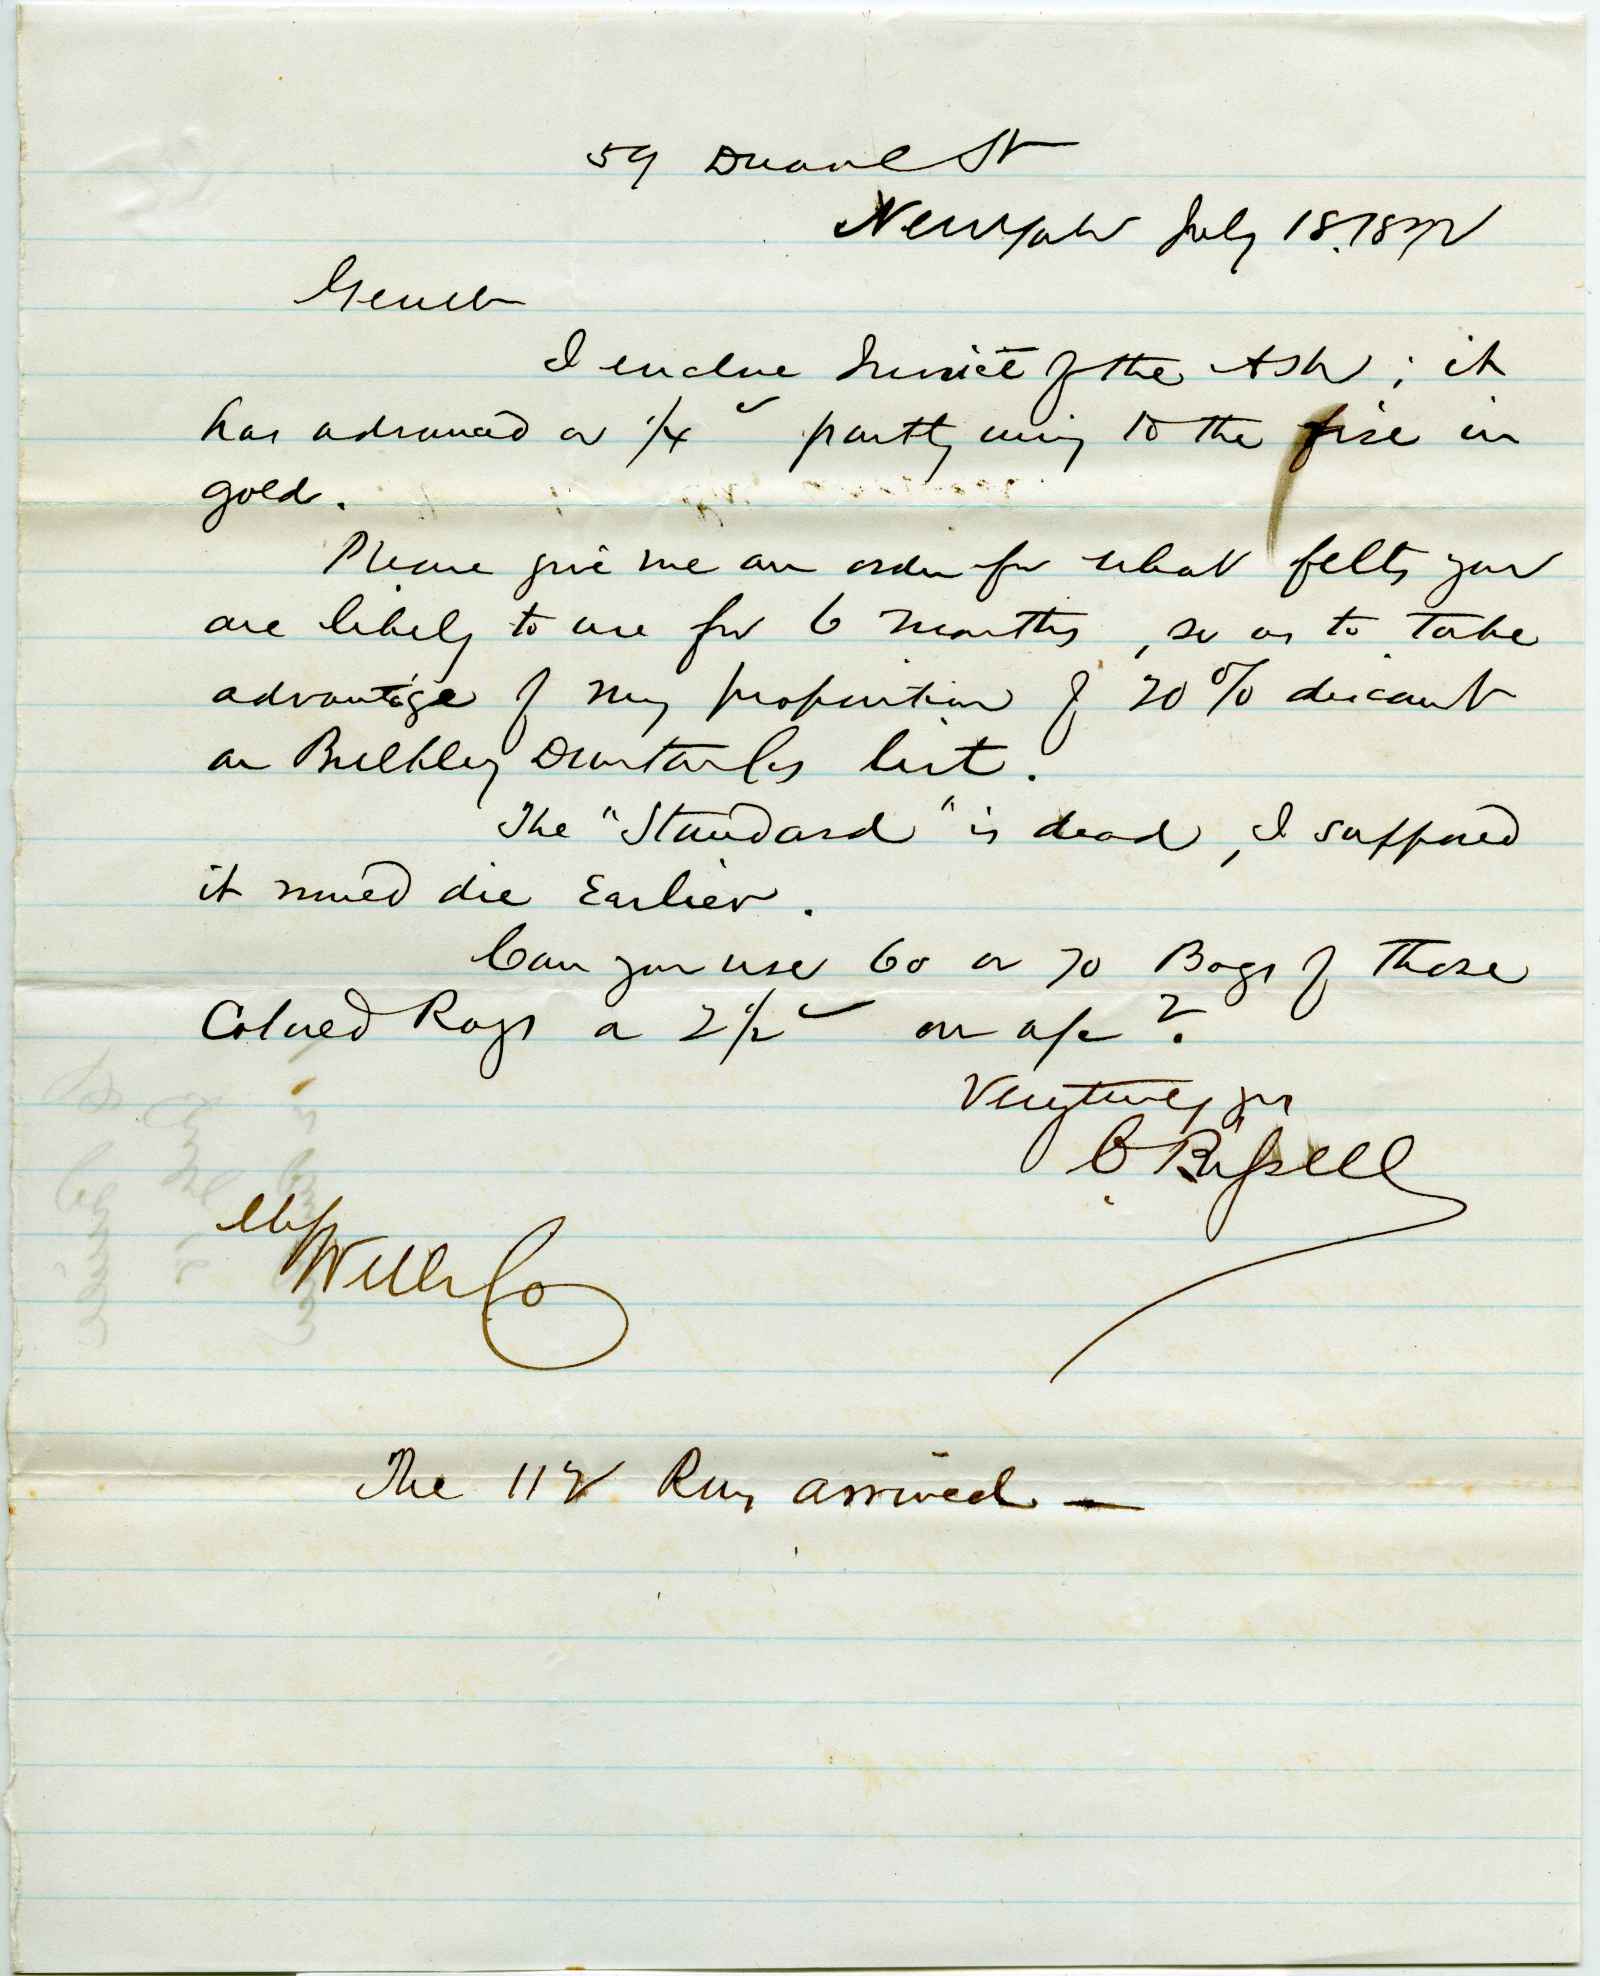 59 Duane St
New York July 18. 1872
Gents
I enclose Invoice of the Ash ; it
has advanced a 1/4 c partly owing to the rise in
gold.
Please give me an order for what felts you
are likely to use for 6 months , so as to take
advantage of my proportion of 20 % discount
on Bulkley Duntons list .
The "Standard" is dead , I supposed
it would die Earlier .
Can you use 60 or 70 Bags of those
Colored Rags a 2 1/2 c on a/c ?
Very truly yrs
C Russell
Mess
Wells Co
The 112 Rugs arrived —